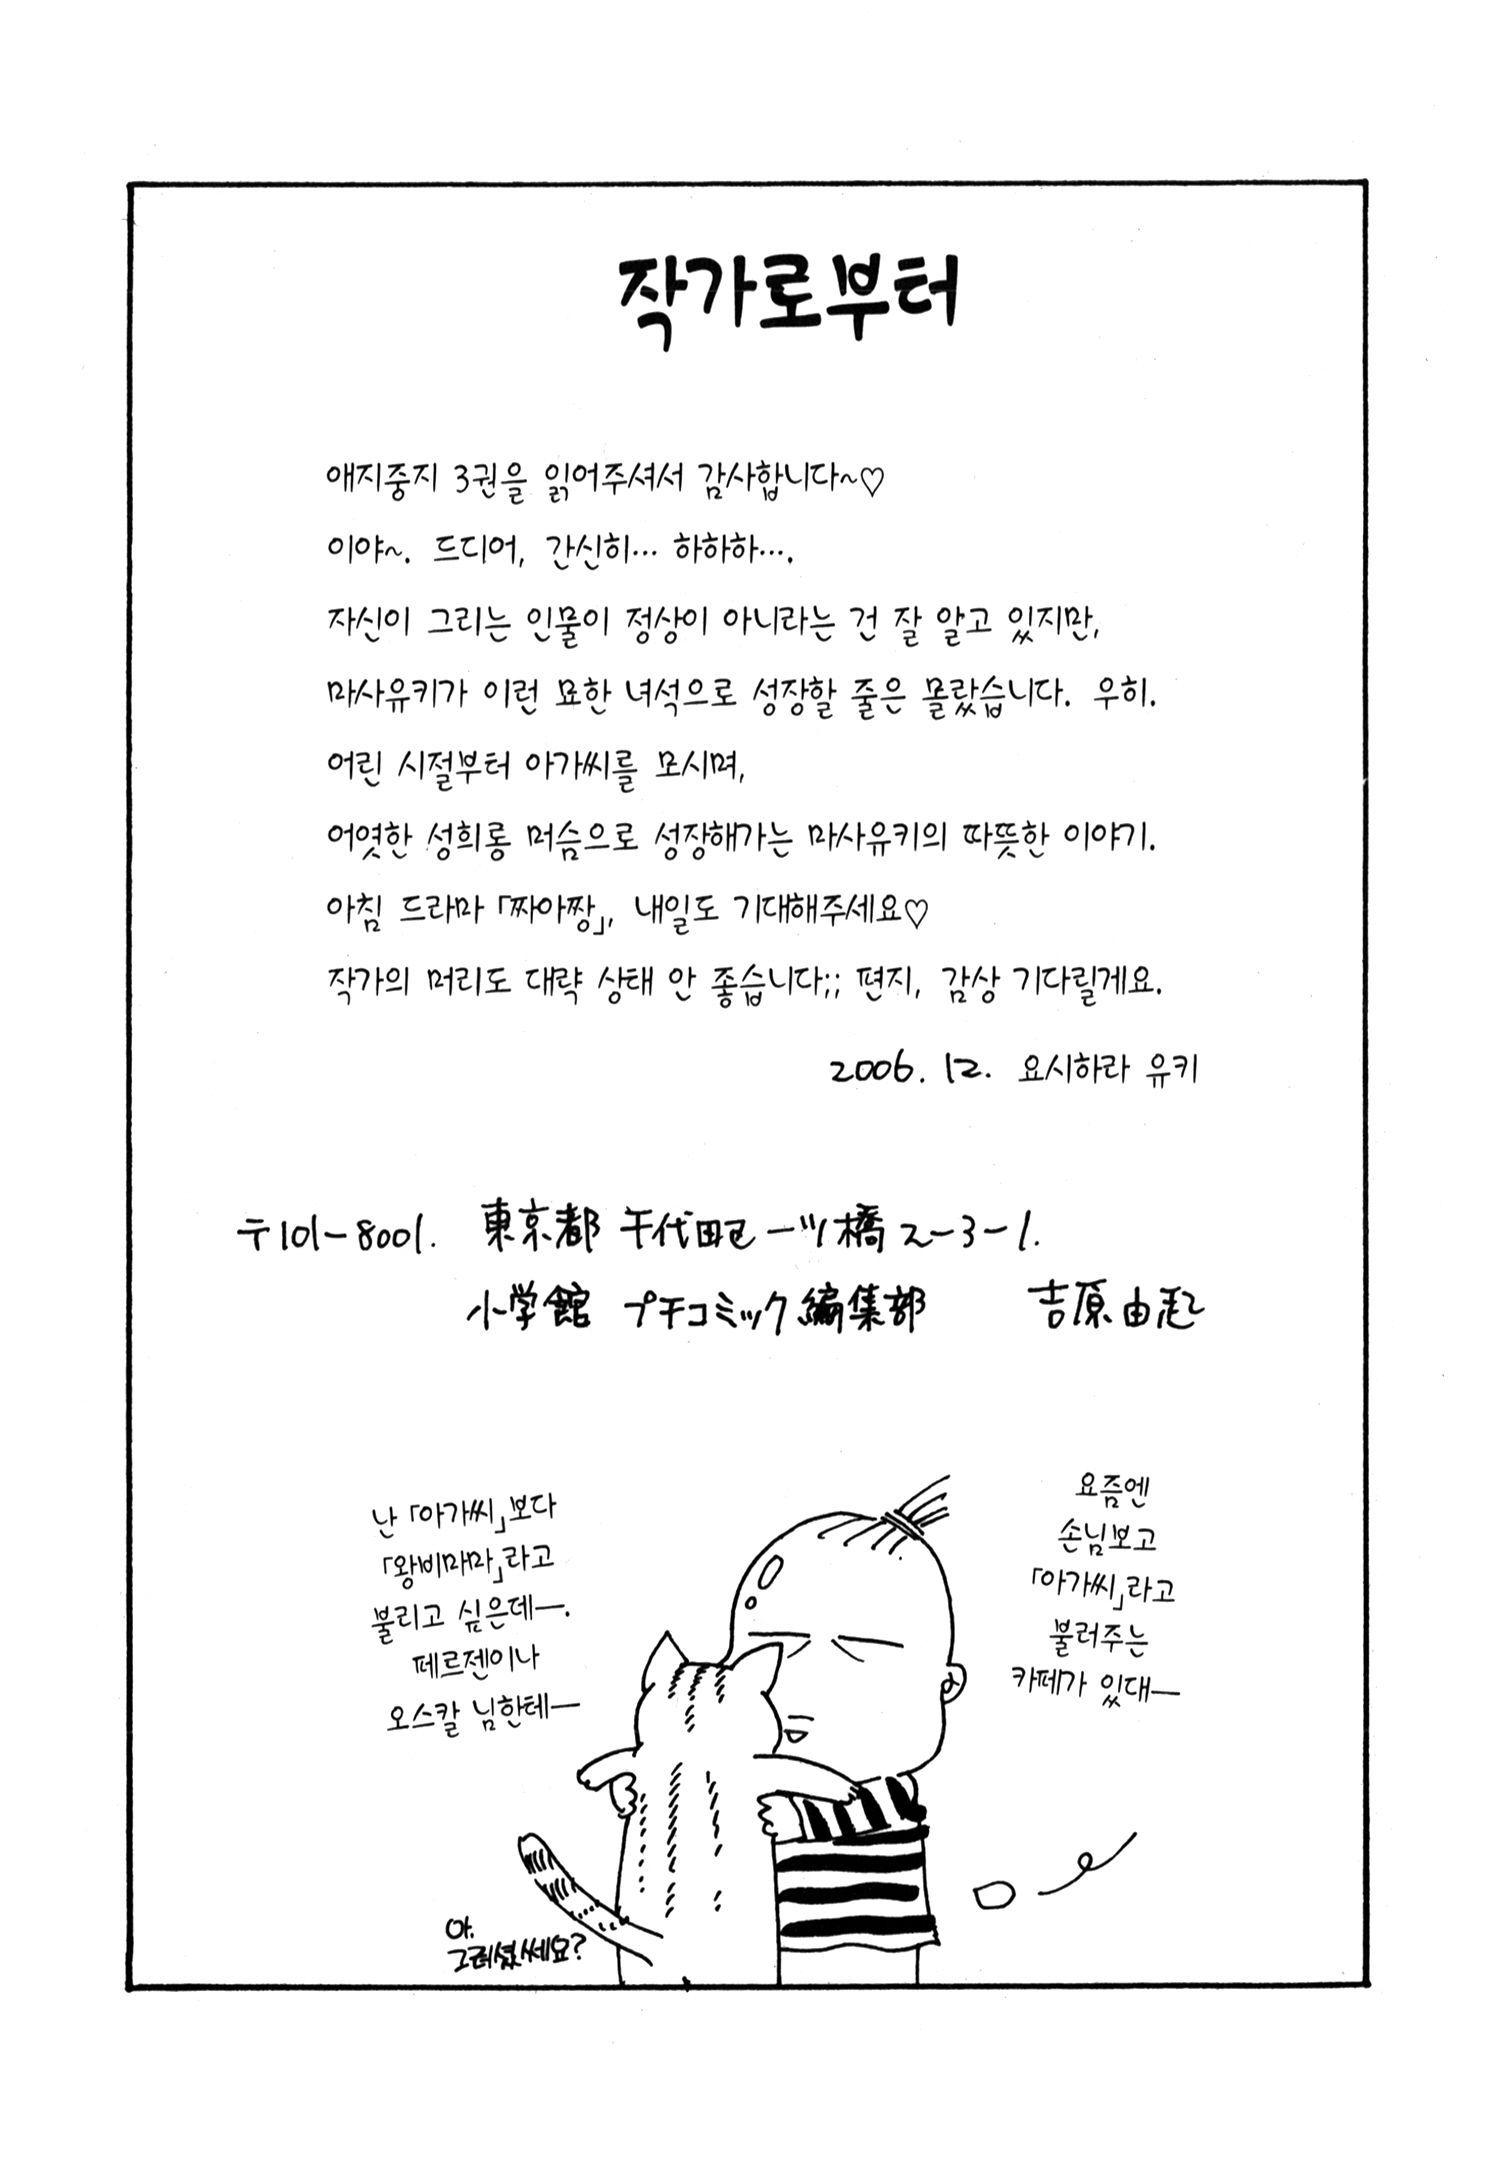 작가로부터
애지중지 3권을 읽어주셔서 감사합니다~♡
이야~. 드디어, 간신히… 하하하….
자신이 그리는 인물이 정상이 아니라는 건 잘 알고 있지만,
마사유키가 이런 묘한 녀석으로 성장할 줄은 몰랐습니다. 우히.
어린 시절부터 아가씨를 모시며,
어엿한 성희롱 머슴으로 성장해가는 마사유키의 따뜻한 이야기.
아침 드라마 「짜아짱」, 내일도 기대해주세요♡
작가의 머리도 대략 상태 안 좋습니다;; 편지, 감상 기다릴게요.
2006. 12. 요시하라 유키
〒101-8001. 東京都 千代田区 一ツ橋 2-3-1.
小学館 プチコミック編集部 吉原由起
요즘엔
손님보고
「아가씨」라고
불러주는
카페가 있대—
난 「아가씨」보다
「왕비마마」라고
불리고 싶은데—.
페르젠이나
오스칼 님한테—
아.
그러셨쎄요?